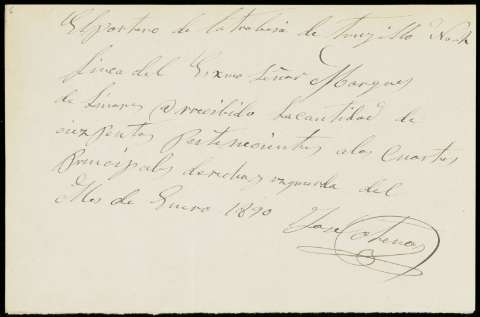 El portero de la trabesia de Trugillo
finca del Exmo Señor Marques
de Linares a rrecibido la cantidad de
pertenecientes alos cuartos
Principales derecha y izquierda del
Mes de Enero 1890
Jose